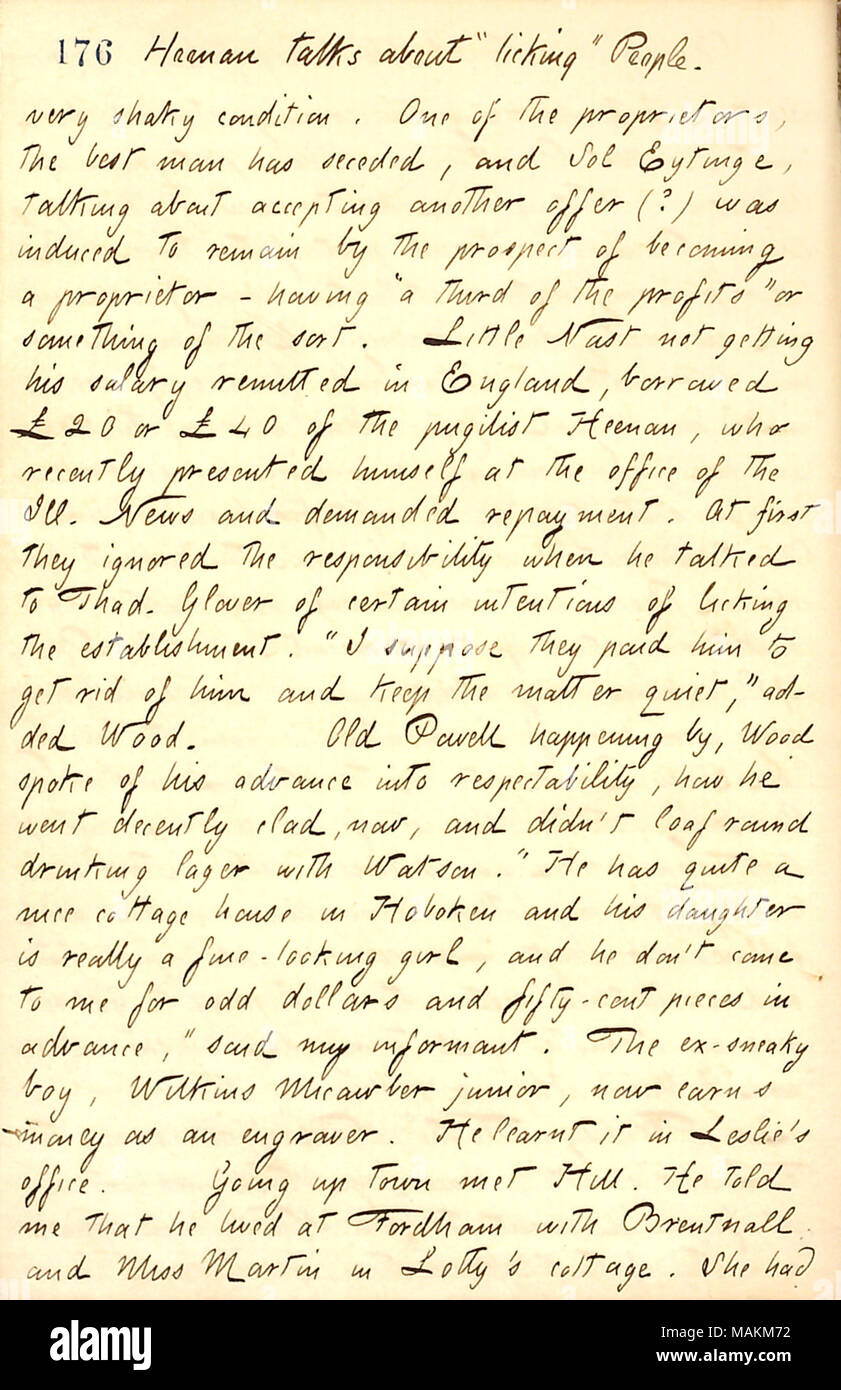 176 Heenan talks about "licking" People.
very shaky condition. One of the proprietors,
the best man has seceded, and Sol Eytinge,
talking about accepting another offer (?) was
induced to remain by the prospect of becoming
a proprietor - having "a third of the profits" or
something of the sort. Little Nast not getting
his salary remitted in England, borrowed
£20 or £40 of the pugilist Heenan, who
recently presented himself at the office of the
Ill. News and demanded repayment. At first
they ignored the responsibility when he talked
to Thad. Glover of certain intentions of licking
the establishment. "I suppose they paid him to
get rid of him and keep the matter quiet," ad-
ded Wood. Old Powell happening by, Wood
spoke of his advance into respectability, how he
went decently clad, now, and didn't loaf round
drinking lager with Watson. "He has quite a
nice cottage house in Hoboken and his daughter
is really a fine-looking girl, and he don't come
to me for odd dollars and fifty-cent pieces in
advance," said my informant. The ex-sneaky
boy, Wilkins Micawber junior, now earns
money as an engraver. He learnt it in Leslie's
office. Going up town met Hill. He told
me that he lived at Fordham with Brentnall
and Miss Martin in Lotty's cottage. She had
alamy
Image ID: MAKM72
www.alamy.com